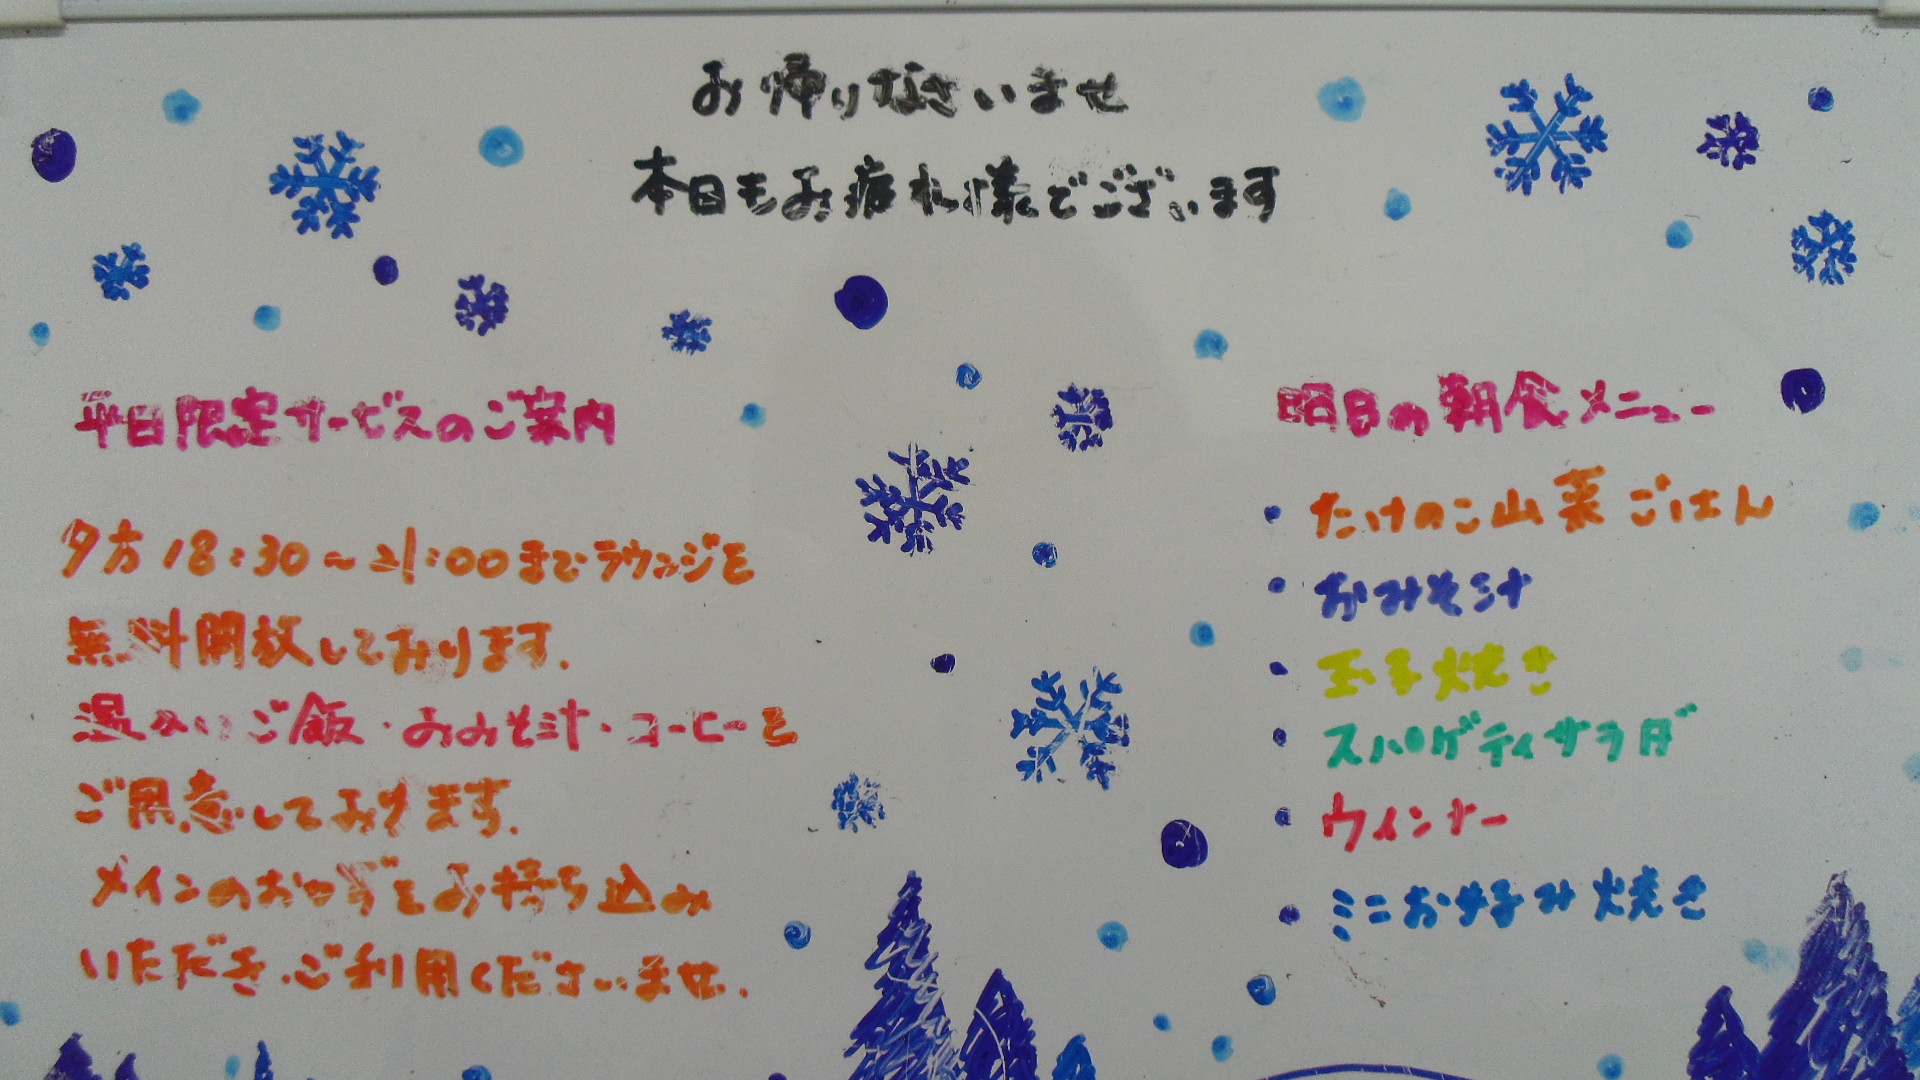 お帰りなさいませ
本日もお疲れ様でございます
平日限定サービスのご案内
夕方18:30～21:00までラウンジを
無料開放しております.
温かいご飯・おみそ汁・コーヒーを
ご用意しております.
メインのおかずをお持ち込み
いただき、ご利用くださいませ.
明日の朝食メニュー
・たけのこ山菜ごはん
・おみそ汁
・玉子焼き
・スパゲティサラダ
・ウインナー
・ミニお好み焼き